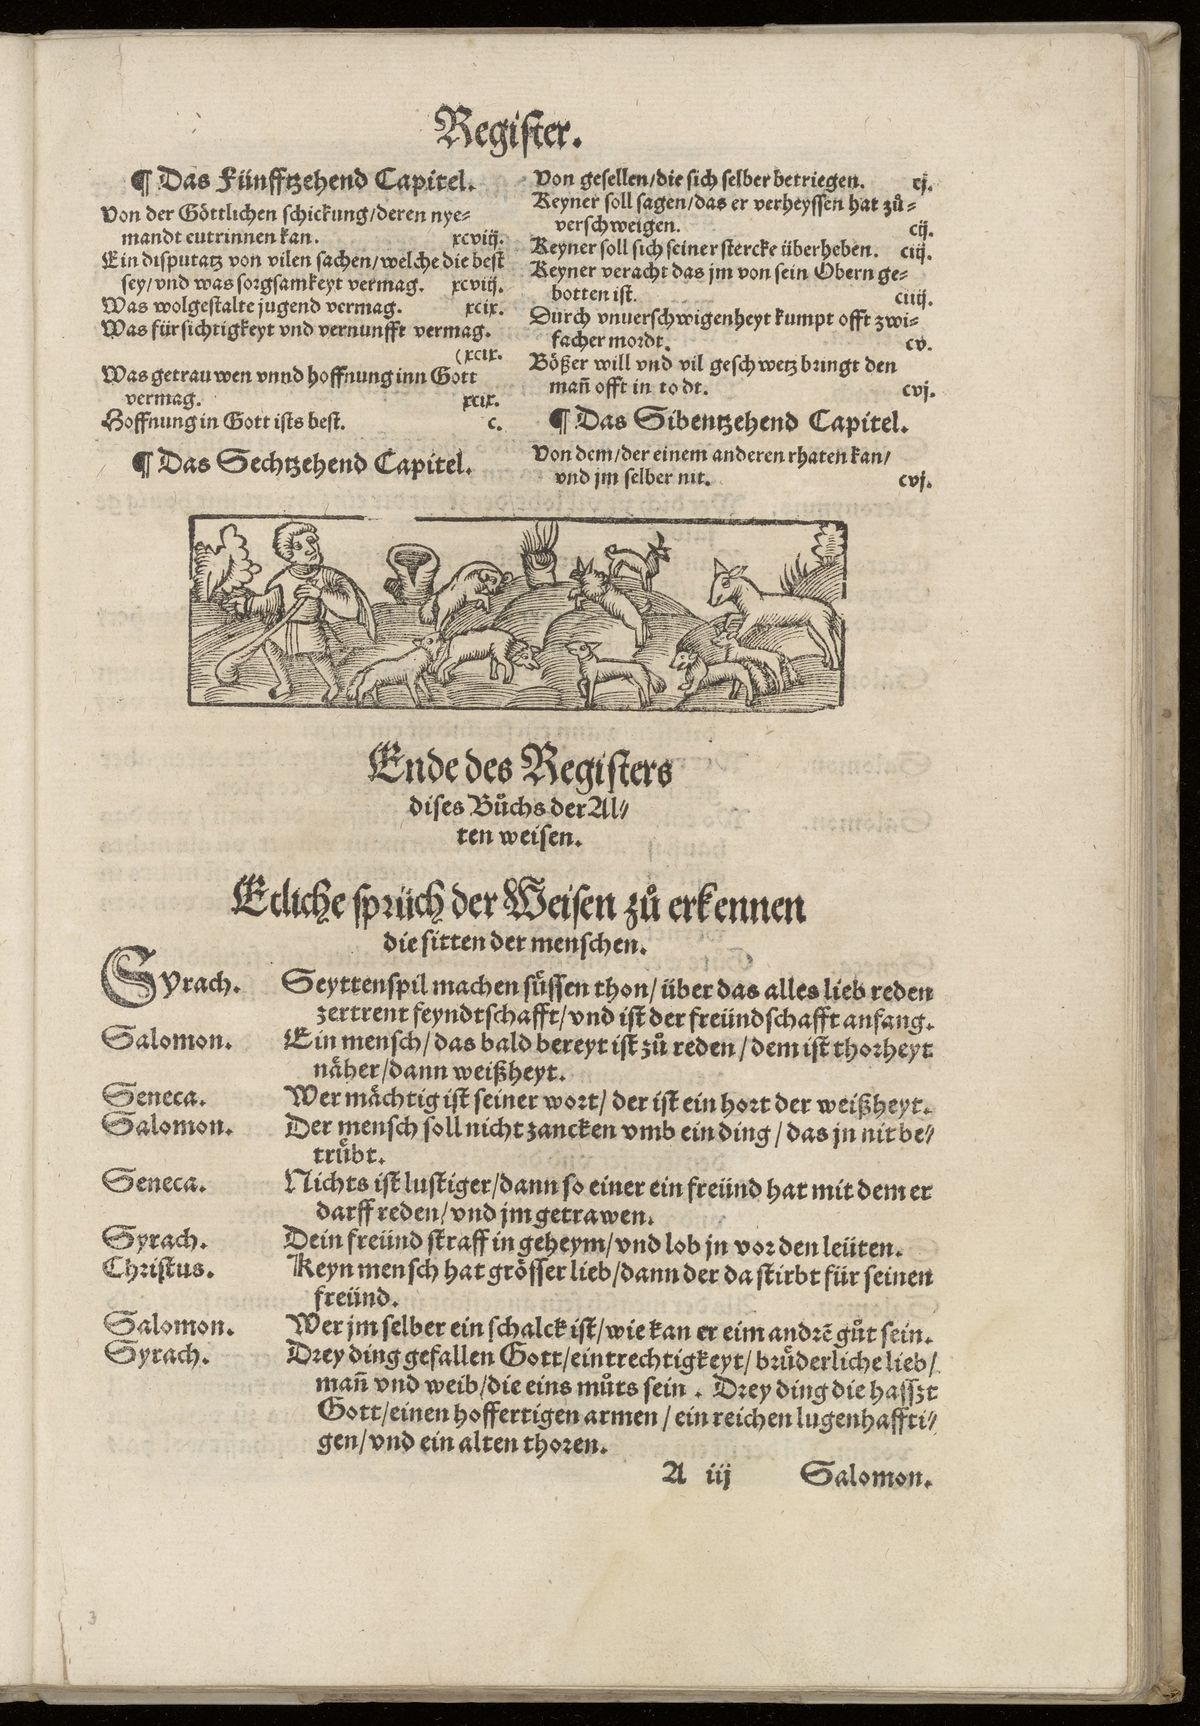 Register.
¶ Das Fünfftzehend Capitel.
Von der Göttlichen schickung/deren nye=
mandt eutrinnen kan. xcviij.
Ein disputatz von vilen sachen/welche die best
sey/vnd was sorgsamkeyt vermag. xcviij.
Was wolgestalte jugend vermag. xcix.
Was fürsichtigkeyt vnd vernunfft vermag.
(xcix.
Was getrauwen vnnd hoffnung inn Gott
vermag. xcix.
Hoffnung in Gott ists best. c.
¶ Das Sechtzehend Capitel.
Von gesellen/die sich selber betriegen. cj.
Keyner soll sagen/das er verheyssen hat zů=
verschweigen. cij.
Keyner soll sich seiner stercke überheben. ciij.
Keyner veracht das jm von sein Obern ge=
botten ist. ciiij.
Durch vnuerschwigenheyt kumpt offt zwi=
facher mordt. cv.
Bößer will vnd vil geschwetz bringt den
mañ offt in todt. cvj.
¶ Das Sibentzehend Capitel.
Von dem/der einem anderen rhaten kan/
vnd jm selber nit. cvj.
Ende des Registers
dises Bůchs der Al=
ten weisen.
Etliche sprüch der Weisen zů erkennen
die sitten der menschen.
Syrach. Seyttenspil machen sůssen thon/über das alles lieb reden
zertrent feyndtschafft/vnd ist der freündschafft anfang.
Salomon. Ein mensch/das bald bereyt ist zů reden/dem ist thorheyt
näher/dann weißheyt.
Seneca. Wer mächtig ist seiner wort/der ist ein hort der weißheyt.
Salomon. Der mensch soll nicht zancken vmb ein ding/das jn nit be=
trübt.
Seneca. Nichts ist lustiger/dann so einer ein freünd hat mit dem er
darff reden/vnd jm getrawen.
Syrach. Dein freünd straff in geheym/vnd lob jn vor den leüten.
Christus. Keyn mensch hat grösser lieb/dann der da stirbt für seinen
freünd.
Salomon. Wer jm selber ein schalck ist/wie kan er eim andrẽ gůt sein.
Syrach. Drey ding gefallen Gott/eintrechtigkeyt/brüderliche lieb/
mañ vnd weib/die eins můts sein. Drey ding die hasszt
Gott/einen hoffertigen armen/ein reichen lugenhaffti=
gen/vnd ein alten thoren.
A iij Salomon.
3